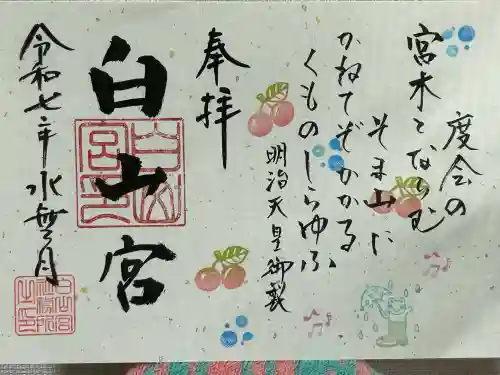 度会の
宮木となりむ
そま山に
かねてぞかかる
くものしらゆふ
明治天皇御製
奉拝
白山宮
令和七年水無月
白山宮印